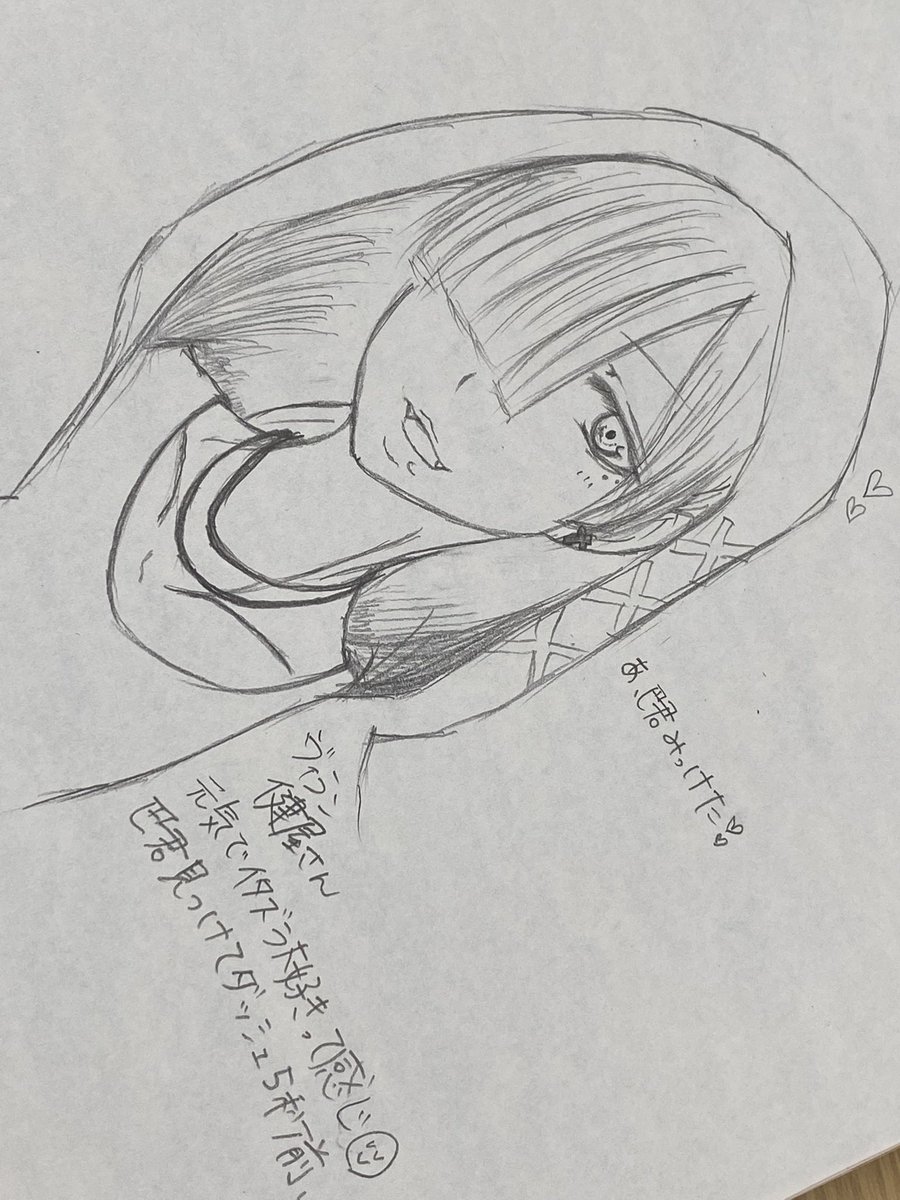 あ、巴君みっけた♡♡
ヴィラン
健屋さん
元気でイタズラ大好きって感じ
巴君見つけてダッシュ5秒前、